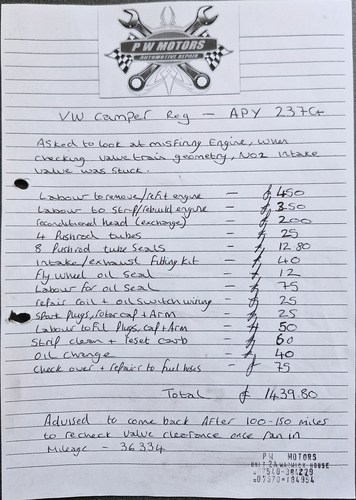 P W MOTORS
AUTOMOTIVE REPAIR
VW Camper Reg - APY 237G
Asked to look at misfiring Engine, when
checking valvetrain geometry, NO2 intake
valve was stuck.
Labour to remove/refit engine - £ 450
Labour to strip/rebuild engine - £ 350
reconditional head (exchange) - £ 200
4 Pushrod tubes - £ 25
8 Pushrod tube Seals - £ 12.80
Intake/exhaust Fitting Kit - £ 40
Fly wheel oil seal - £ 12
Labour for oil seal - £ 75
repair coil + oil switch wiring - £ 25
spark plugs, rotor cap + Arm - £ 25
Labour to fit Plugs, cap + Arm - £ 50
Strip clean + reset carb - £ 60
oil change - £ 40
check over + repairs to fuel hoses - £ 75
Total £ 1439.80
Advised to come back After 100-150 miles
to recheck valve clearance once ran in
Mileage - 36334
P W MOTORS
WARWICK HOUSE